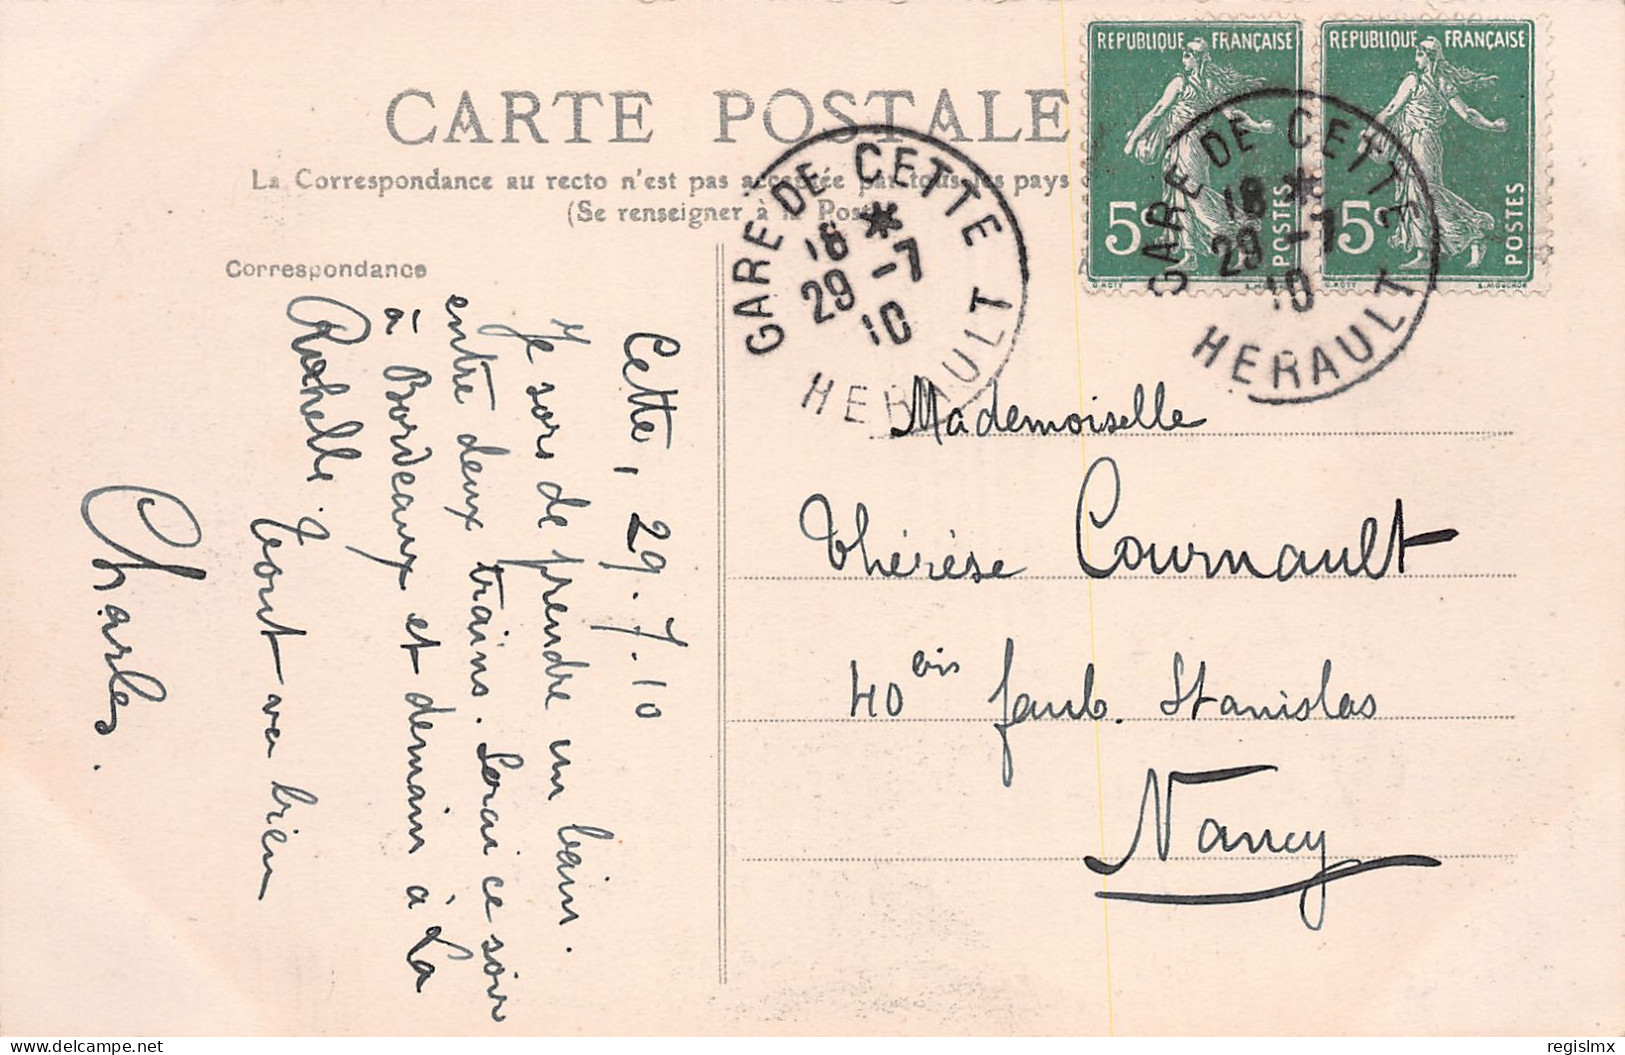 CARTE POSTALE
La Correspondance au recto n'est pas acceptée par tous les pays
(Se renseigner à la Poste)
Correspondance
Cette, 29.7.10
Je sors de prendre un bain
entre deux trains. Serai ce soir
à Bordeaux et demain à La
Rochelle. Tout va bien
Charles.
REPUBLIQUE FRANÇAISE
5c
POSTES
REPUBLIQUE FRANÇAISE
15c
POSTES
O. ROTY
E. MOUCHON
GARE DE CETTE
18 *
29 -7
10
HERAULT
GARE DE CETTE
18 *
29 -7
10
HERAULT
Mademoiselle
Thérèse Cournault
40 bis faub. Stanislas
Nancy
regislmx